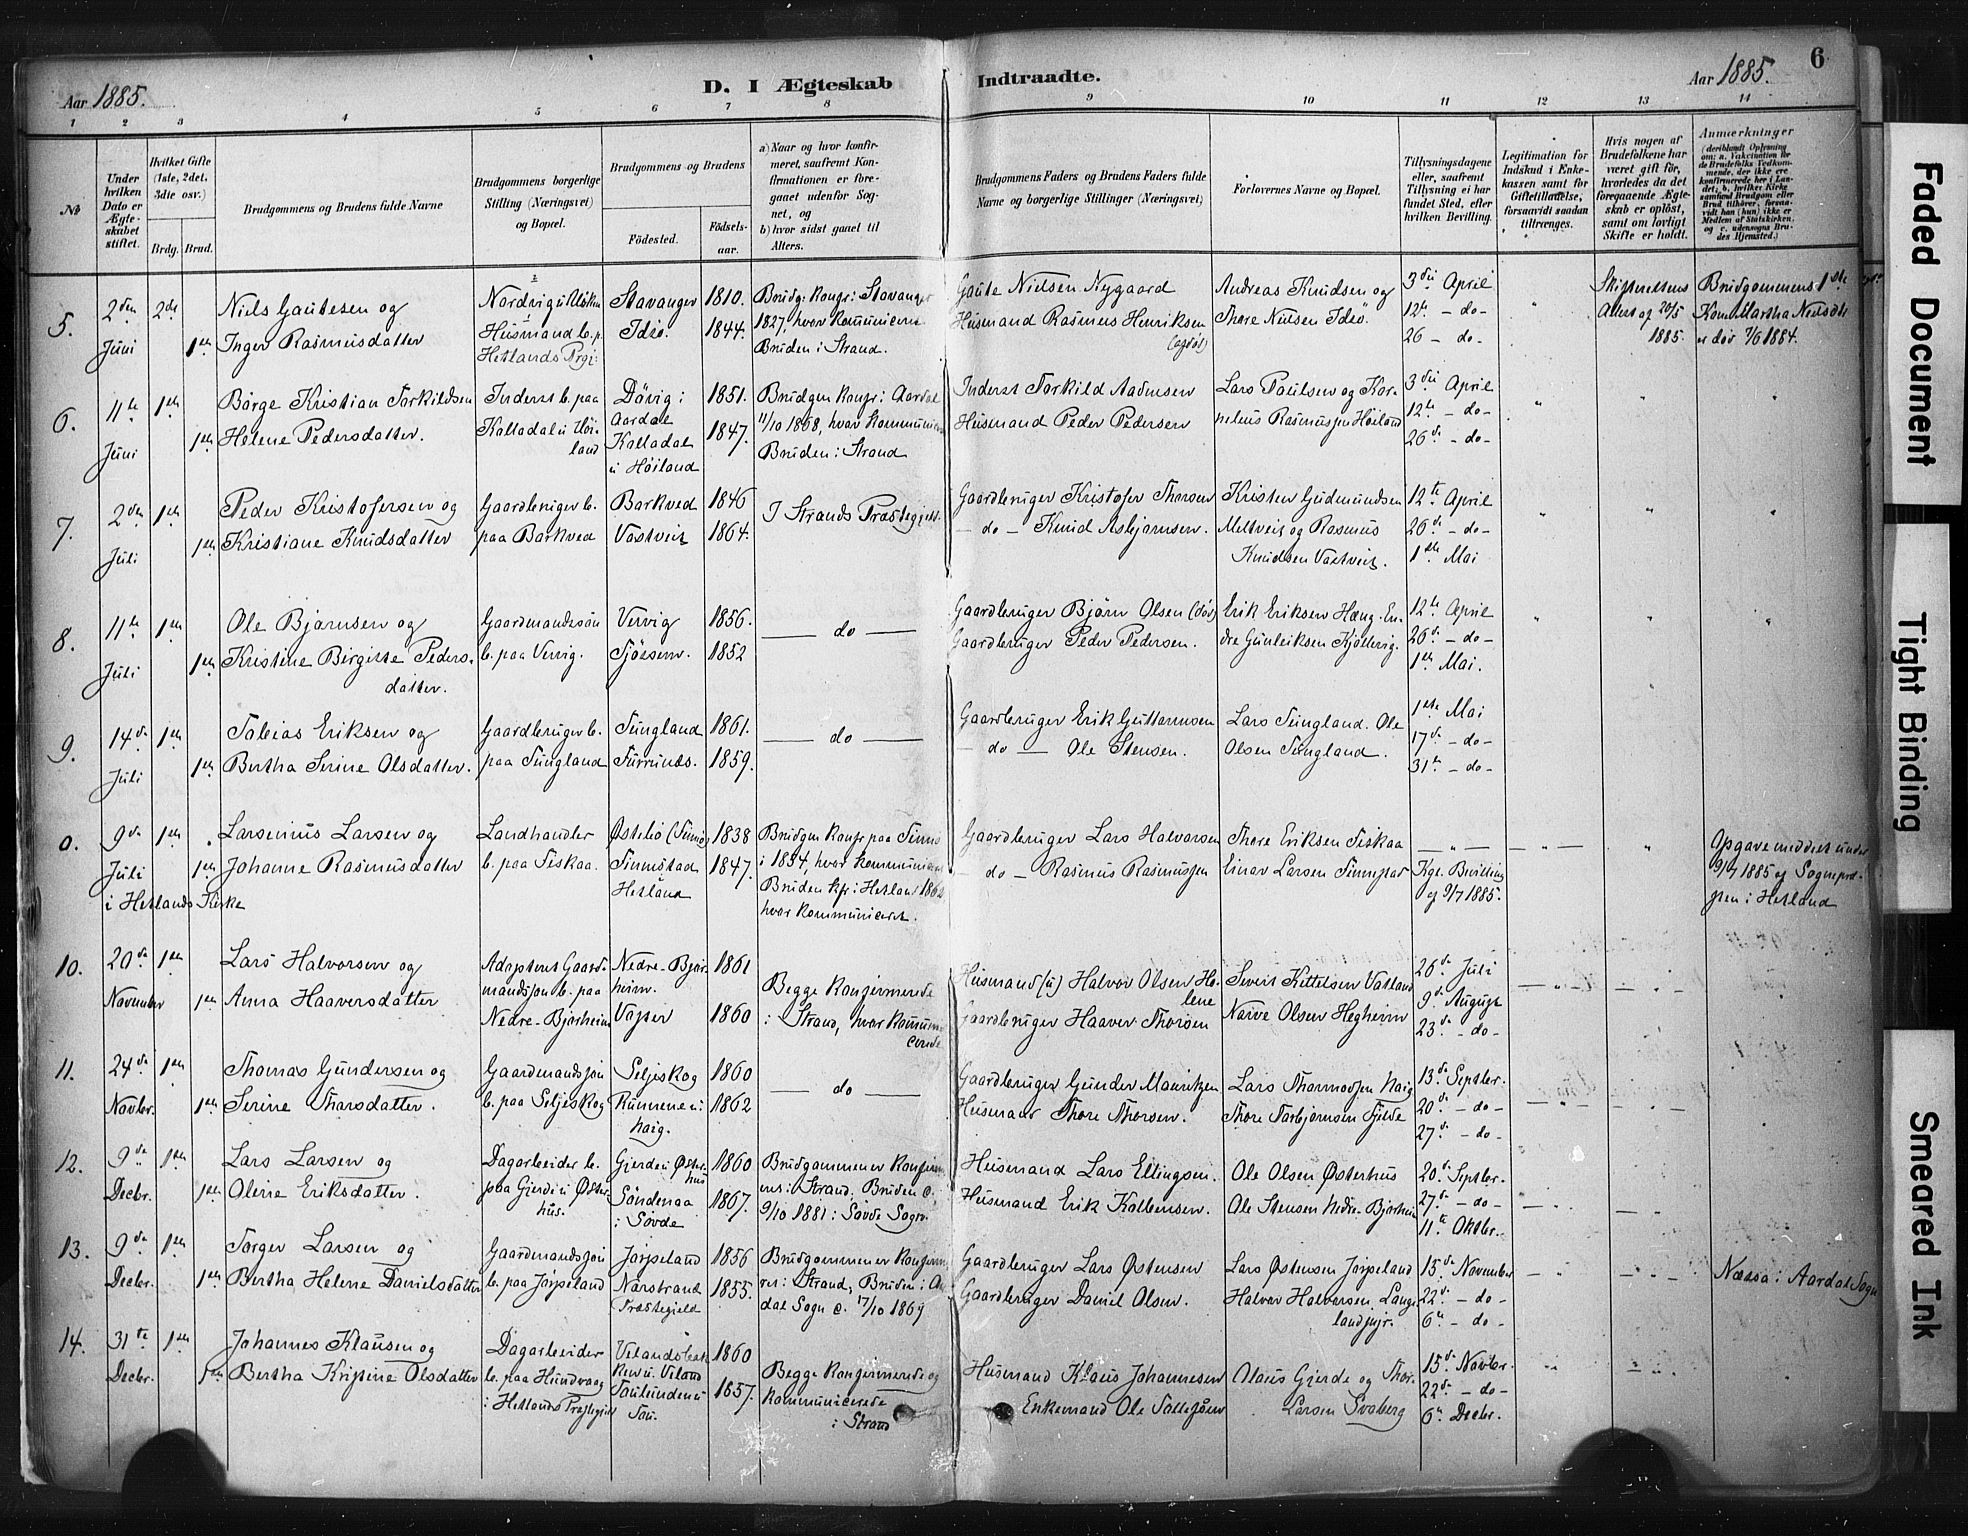 Aar 1885.
D. I Ægteskab Indtraadte.
Aar 1885.
6
1 2 3 4 5 6 7 8 9 10 11 12 13 14
№
Under hvilken Dato er Ægteskabet stiftet.
Hvilket Gifte (1ste, 2det, 3die osv.)
Brdg. Brud.
Brudgommens og Brudens fulde Navne
Brudgommens borgerlige Stilling (Næringsvei) og Bopæl.
Brudgommens og Brudens
Fødested.
Fødselsaar.
a) Naar og hvor konfirmeret, saafremt Konfirmationen er foregaaet udenfor Sognet, og
b) hvor sidst gaaet til Alters.
Brudgommens Faders og Brudens Faders fulde Navne og borgerlige Stillinger (Næringsvei)
Forlovernes Navne og Bopæl.
Tillysningsdagene eller, saafremt Tillysning ei har fundet Sted, efter hvilken Bevilling.
Legitimation for Indskud i Enkekassen samt for Giftetilladelse, forsaavidt saadan tiltrænges.
Hvis nogen af Brudefolkene har været gift før, hvorledes da det foregaaende Ægteskab er opløst, samt om lovligt Skifte er holdt.
Anmerkninger
(deriblandt Oplysning om: a. Vakcination for de Brudefolks Vedkommende, der ikke ere konfirmerede her i Landet; b. hvilken Kirkesamfund Brudgom eller Brud tilhører, forsaavidt han (hun) ikke er Medlem af Statskirken, og c. udensogns Brudes Hjemsted.)
5. 2den Juni
2de
1ste
Niels Gautesen og
Inger Rasmusdatter
Husmand b. p.
Hetlands Prgj:
Stavanger 1810.
Idsø. 1844.
Brudg. konf: i Stavanger
1827, hvor kommuniceret
Bruden i Strand.
Gaute Nielsen Nygaard
Husmand Rasmus Henriksen
Andreas Knudsen og
Thore Nielsen Idsø.
3die April
12te – do –
26 – do –
Skifterettens
Attest af 20/5
1885.
Brudgommens 1ste
Kone Martha Nielsdtr
er død 7/6 1884.
6. 11te Juni
1ste
1ste
Børge Kristian Torkildsen
Helene Pedersdatter.
Inderst b. paa
Kalladal u. Høiland
Døvig i Aardal 1851.
Kalladal u Høiland 1847.
Brudgm konf: i Aardal
11/10 1868, hvor kommuniceret
Bruden i Strand
Inderst Torkild Aadnesen
Husmand Peder Pedersen
Lars Paulsen og Kornelius Rasmussen Høiland
3die April
12te – do –
26de – do –
7. 2den Juli
1ste
1ste
Peder Kristofersen og
Kristiane Knudsdatter
Gaardbruger b.
paa Barkved
Barkved 1846
Vastveit 1864.
I Strands Præstegjeld.
Gaardbruger Kristofer Thorsen
– do – Knud Asbjørnsen.
Kristen Gudmundsen
Meltveit og Rasmus
Knudsen Vastveit.
12te April
26de – do –
1ste Mai
8. 11te Juli
1ste
1ste
Ole Bjørnsen og
Kristine Birgitte Pedersdatter.
Gaardmandssøn
b. paa Vervig.
Vervig 1856.
Tjøssem. 1852
– do –
Gaardbruger Bjørn Olsen (død)
Gaardbruger Peder Pedersen.
Erik Eriksen Hæng. Endre Gunleiksen Kjøllevig.
12te April
26de – do –
1ste Mai.
9. 14de Juli
1ste
1ste
Tobias Eriksen og
Bertha Serine Olsdatter.
Gaardbruger b.
paa Tungland
Tungland 1861.
Furrunes. 1859.
– do –
Gaardbruger Erik Guttormsen
– do – Ole Stensen.
Lars Tungland. Ole
Olsen Tungland.
1ste Mai
17de – do –
31te – do –
0. 9de Juli
i Hetlands Kirke
1ste
1ste
Larsenius Larsen og
Johanne Rasmusdatter
Landhandler
b. paa Fiskaa.
Østebø 1838
Finnestad Hetland 1847.
i 1854, hvor kommuniceret
Bruden kfr: i Hetland 1862
hvor kommuniceret.
Gaardbruger Lars Halvorsen
– do – Rasmus Rasmussen
Thore Eriksen Fiskaa
Einar Larsen Finnestad
Kgl. Bevilling
af 9/7 1885.
Opgave meddelt under
9/7 1885 af Sognepresten i Hetland
10. 20de November
1ste
1ste
Lars Halvorsen og
Anna Haaversdatter
Adoptent Gaardmandssøn b. paa
Nedre-Bjørheim
Nedre-Bjørheim. 1861
1860
Begge Konfirmerede
i Strand, hvor kommunicerede
Husmand (u) Halvor Olsen Holene
Gaardbruger Haaver Thorsen
Sivert Kittelsen Vatland
Narve Olsen Hegheim
26de Juli
9de August
23de – do –
11. 24de Novbr.
1ste
1ste
Thomas Gundersen og
Serine Tharsdatter.
Gaardmandssøn
b. paa Seljeskog
Seljeskog 1860
1862
– do –
Gaardbruger Gunder Mauritzen
Husmand Thore Thorsen.
Lars Thormodsen Haig
Thore Torbjørnsen Fjelde
13de Septbr.
20de – do –
27de – do –
12. 9de Decbr.
1ste
1ste
Lars Larsen og
Olene Eriksdatter.
Dagarbeider b.
paa Gjerde u Østerhus.
Gjerde u Østerhus 1860
Søndenaa i Søvde 1867.
Brudgommen er Konfirmeret i Strand, Bruden c.
9/10 1881 i Søvde Sogn.
Husmand Lars Ellingsen.
Husmand Erik Kolbensen.
Ole Olsen Østerhus
Ole Stensen Nedre-Bjørheim
20de Septbr.
27de – do –
11te Oktbr.
13. 9de Decbr.
1ste
1ste
Torger Larsen og
Bertha Helene Danielsdatter
Gaardmandssøn
b. paa Jørpeland
Jørpeland 1856
Nærstrand Præstegjeld 1855.
Brudgommen er Konfirmeret i Strand, Bruden i Aardal Sogn c. 17/10 1869
Gaardbruger Lars Østensen
Gaardbruger Daniel Olsen.
Lars Østensen Jørpeland
Halvor Halvorsen
15de November
22de – do –
6te – do –
Nessa i Aardal Sogn
14. 31te Decbr.
1ste
1ste
Johannes Klausen og
Bertha Kristine Olsdatter
Dagarbeider
b. paa Hundvaag
i Hetlands Præstegjeld
1860
Tau. 1857.
Begge Konfirmerede og
Kommunicerede
i Strand
Husmand Klaus Johannesen
Enkemand Ole Tollefsen
Olaus Gjerde og Thor.
Larsen Svaberg
15de Novbr.
22de – do –
6te Decbr.
Faded Document
Tight Binding
Smeared Ink